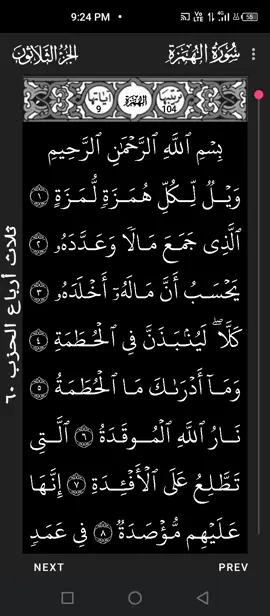 9:24 PM
58
سُورَةُ الْهُمَزَةِ
الجزء الثلاثون
ترتيبها 104
الهُمَزة
آياتها 9
بِسْمِ ٱللَّهِ ٱلرَّحْمَٰنِ ٱلرَّحِيمِ
وَيْلٌ لِّكُلِّ هُمَزَةٍ لُّمَزَةٍ ١
ٱلَّذِى جَمَعَ مَالًا وَعَدَّدَهُۥ ٢
يَحْسَبُ أَنَّ مَالَهُۥٓ أَخْلَدَهُۥ ٣
كَلَّا ۖ لَيُنۢبَذَنَّ فِى ٱلْحُطَمَةِ ٤
وَمَآ أَدْرَىٰكَ مَا ٱلْحُطَمَةُ ٥
نَارُ ٱللَّهِ ٱلْمُوقَدَةُ ٦ ٱلَّتِى
تَطَّلِعُ عَلَى ٱلْأَفْـِٔدَةِ ٧ إِنَّهَا
عَلَيْهِم مُّؤْصَدَةٌ ٨ فِى عَمَدٍ
ثلاث أرباع الحزب ٦٠
NEXT
PREV